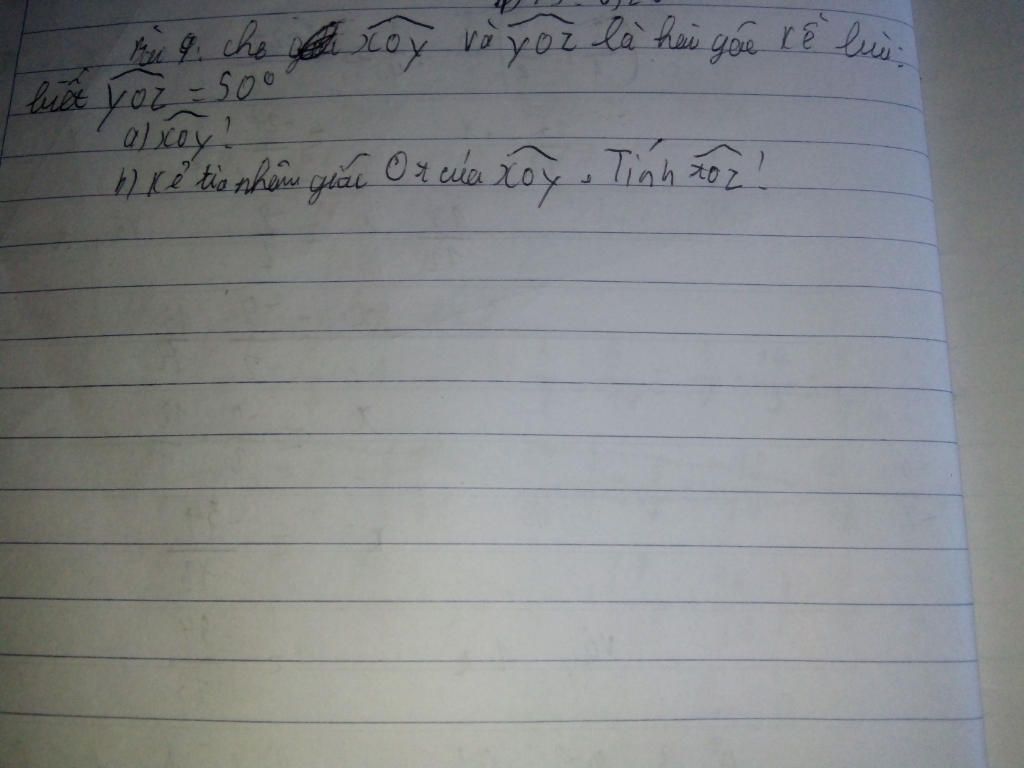 Bài 9. Cho xOy và yOz là hai góc kề bù:
biết yOz = 50°
a) xOy!
b) Kẻ tia phân giác Ot của xOy. Tính tOz!